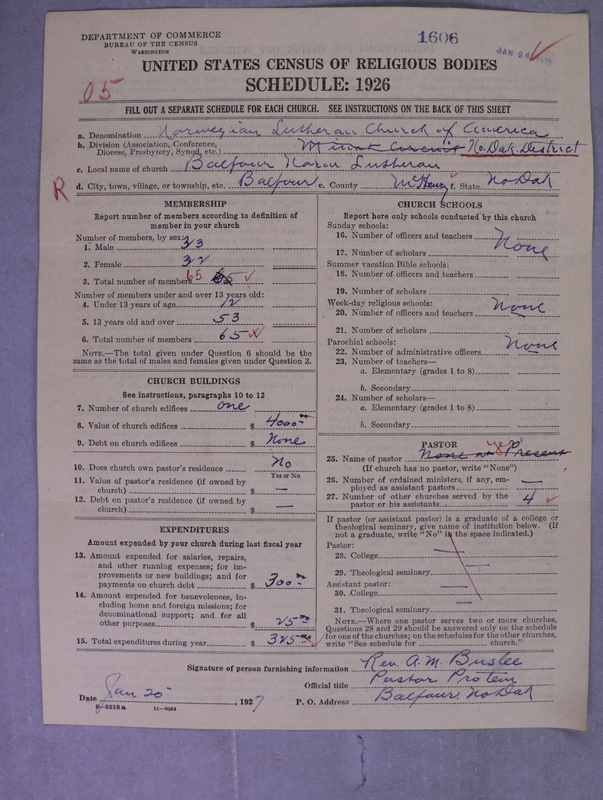 DEPARTMENT OF COMMERCE
BUREAU OF THE CENSUS
WASHINGTON
1606
JAN 24
UNITED STATES CENSUS OF RELIGIOUS BODIES
SCHEDULE: 1926
05
FILL OUT A SEPARATE SCHEDULE FOR EACH CHURCH. SEE INSTRUCTIONS ON THE BACK OF THIS SHEET
a. Denomination Norwegian Lutheran Church of America
b. Division (Association, Conference, Diocese, Presbytery, Synod, etc.) Minot Circuit No. Dak. District
c. Local name of church Balfour Norw Lutheran
R
d. City, town, village, or township, etc. Balfour e. County McHenry f. State No Dak
MEMBERSHIP
Report number of members according to definition of member in your church
Number of members, by sex:
1. Male 33
2. Female 32
3. Total number of members 65 65
Number of members under and over 13 years old:
4. Under 13 years of age 12
5. 13 years old and over 53
6. Total number of members 65
NOTE.—The total given under Question 6 should be the same as the total of males and females given under Question 3.
CHURCH BUILDINGS
See instructions, paragraphs 10 to 12
7. Number of church edifices one
8. Value of church edifices $ 4000
9. Debt on church edifices $ None
10. Does church own pastor's residence No
Yes or No
11. Value of pastor's residence (if owned by church) $ —
12. Debt on pastor's residence (if owned by church) $ —
EXPENDITURES
Amount expended by your church during last fiscal year
13. Amount expended for salaries, repairs, and other running expenses; for improvements or new buildings; and for payments on church debt $ 300
14. Amount expended for benevolences, including home and foreign missions; for denominational support; and for all other purposes $ 25
15. Total expenditures during year $ 325
CHURCH SCHOOLS
Report here only schools conducted by this church
Sunday schools:
16. Number of officers and teachers None
17. Number of scholars
Summer vacation Bible schools:
18. Number of officers and teachers
19. Number of scholars
Week-day religious schools:
20. Number of officers and teachers None
21. Number of scholars
Parochial schools:
22. Number of administrative officers None
23. Number of teachers—
a. Elementary (grades 1 to 8)
b. Secondary
24. Number of scholars—
a. Elementary (grades 1 to 8)
b. Secondary
PASTOR
25. Name of pastor None at Present
(If church has no pastor, write "None")
26. Number of ordained ministers, if any, employed as assistant pastors —
27. Number of other churches served by the pastor or his assistants 4
If pastor (or assistant pastor) is a graduate of a college or theological seminary, give name of institution below. (If not a graduate, write "No" in the space indicated.)
Pastor:
28. College —
29. Theological seminary —
Assistant pastor:
30. College —
31. Theological seminary —
NOTE.—Where one pastor serves two or more churches, Questions 28 and 29 should be answered only on the schedule for one of the churches; on the schedules for the other churches, write "See schedule for church."
Signature of person furnishing information Rev. A. M. Buslee
Official title Pastor Protem
Date Jan 20, 1927 P. O. Address Balfour, No Dak
8-5516a 11-9084